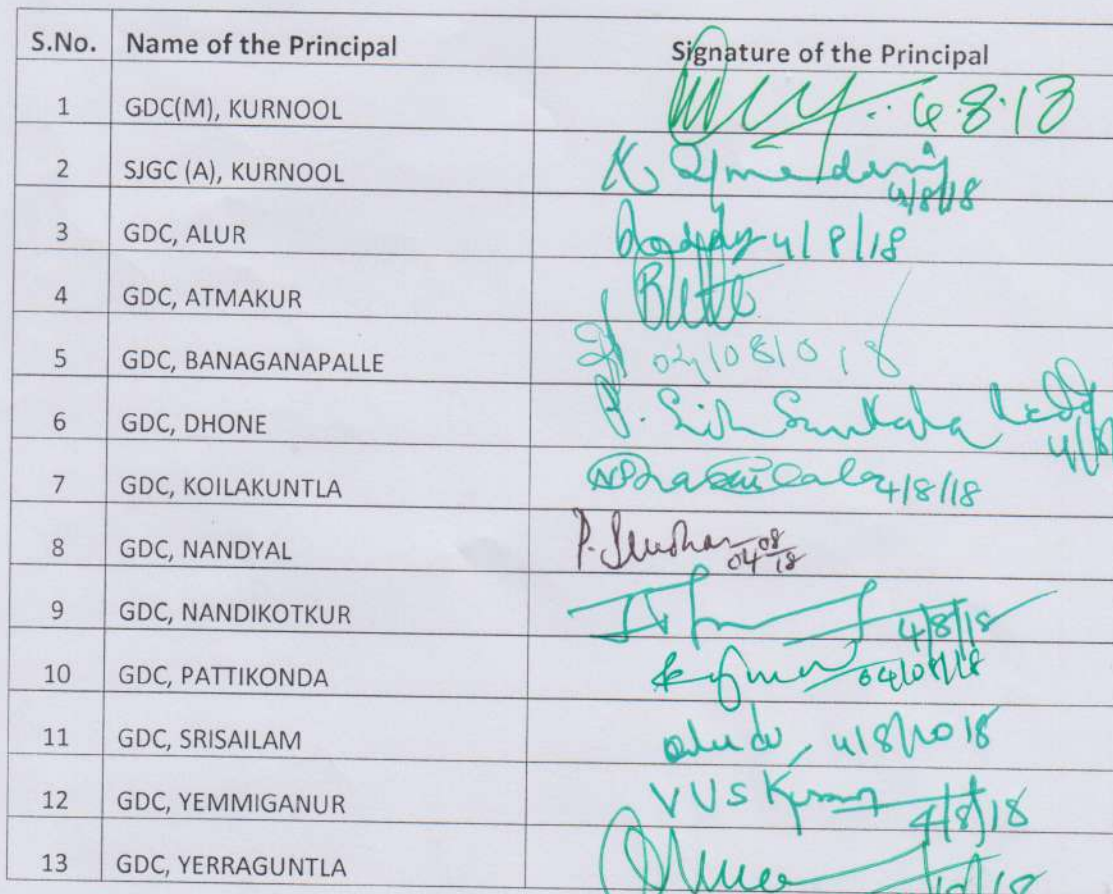 S.No. Name of the Principal Signature of the Principal
1 GDC(M), KURNOOL 6.8.18
2 SJGC (A), KURNOOL K 4/8/18
3 GDC, ALUR 4/8/18
4 GDC, ATMAKUR
5 GDC, BANAGANAPALLE 04/08/018
6 GDC, DHONE
7 GDC, KOILAKUNTLA 4/8/18
8 GDC, NANDYAL 04 08 18
9 GDC, NANDIKOTKUR 4/8/18
10 GDC, PATTIKONDA 04/08/18
11 GDC, SRISAILAM 4/8/2018
12 GDC, YEMMIGANUR VVS Kumar 4/8/18
13 GDC, YERRAGUNTLA